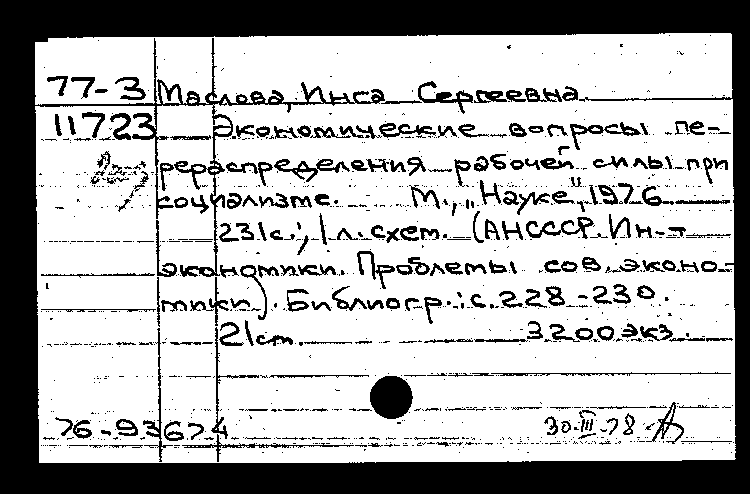 77-3 Маслова, Инга Сергеевна
11723 Экономические вопросы пе-
рераспределения рабочей силы при
социализме. М., „Наука", 1976
231с.; 1 л. схем. (АНСССР. Ин-т
экономики. Проблемы сов. эконо-
мики). Библиогр.: с. 228-230.
21 см. 3200 экз.
76-93674 30.III.78